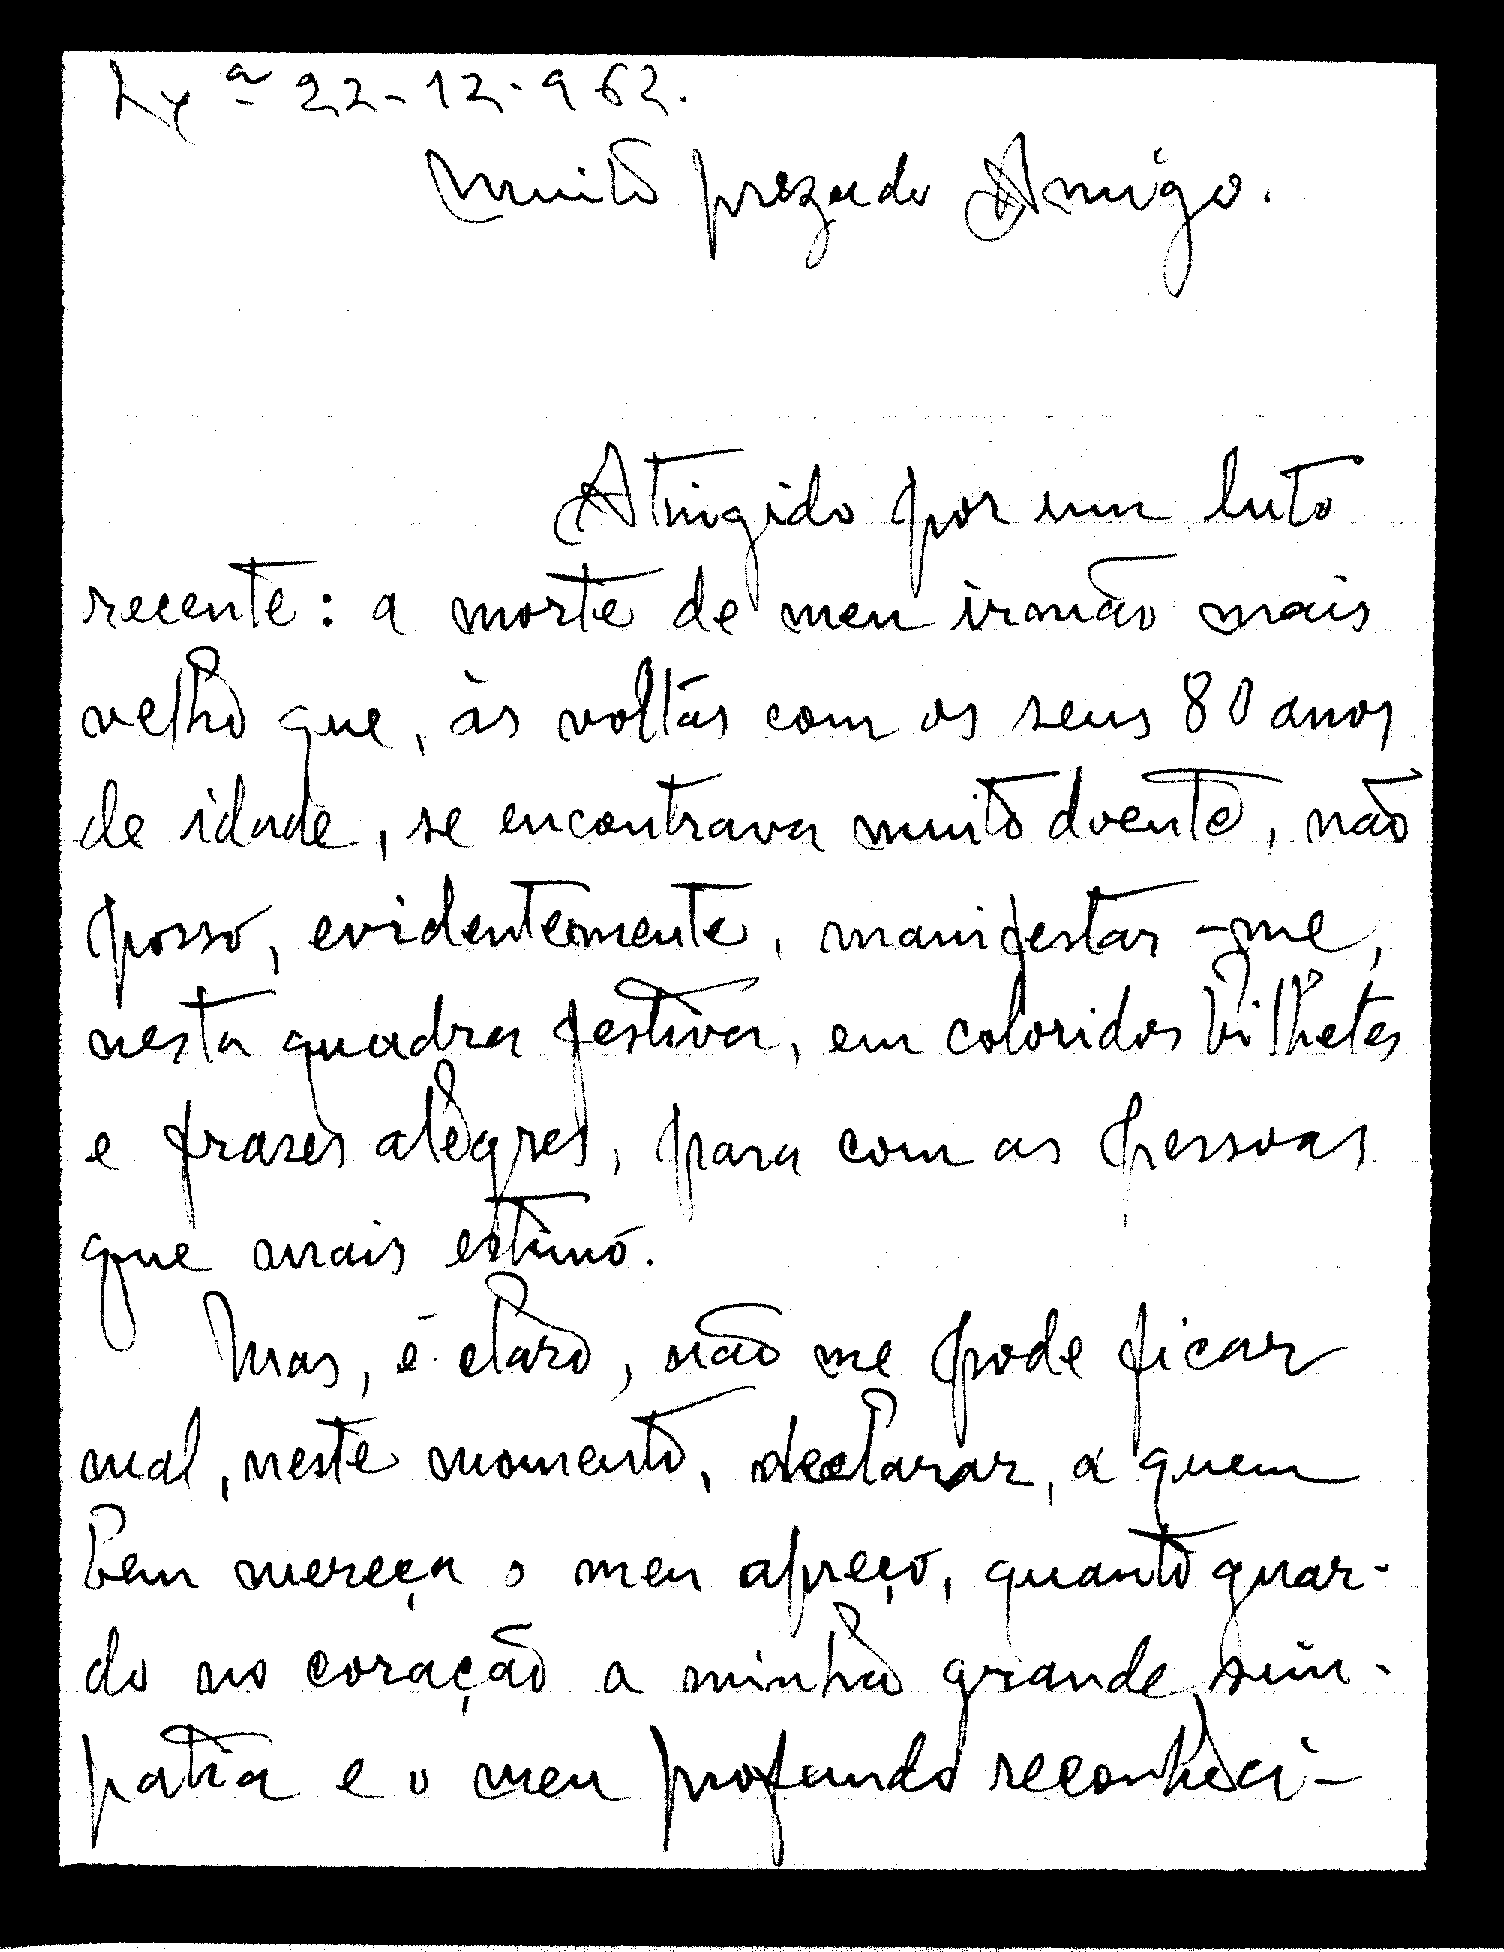 Lxª 22-12-962.
Muito prezado Amigo.
Atingido por um luto
recente: a morte de meu irmão mais
velho que, às voltas com os seus 80 anos
de idade, se encontrava muito doente, não
posso, evidentemente, manifestar-me,
nesta quadra festiva, em coloridos bilhetes
e frases alegres, para com as pessoas
que mais estimo.
Mas, é claro, não me pode ficar
mal, neste momento, declarar, a quem
bem mereça o meu apreço, quanto guar-
do no coração a minha grande sim-
patia e o meu profundo reconheci-